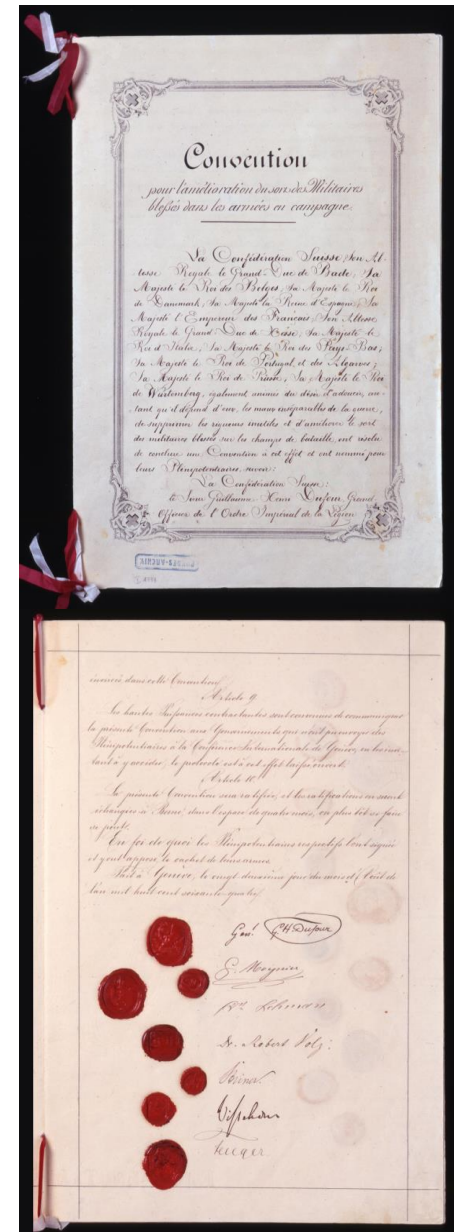 Convention
pour l'amélioration du sort des Militaires
blessés dans les armées en campagne.
La Confédération Suisse, Son Al-
tesse Royale le Grand-Duc de Bade, Sa
Majesté le Roi des Belges, Sa Majesté le Roi
de Danemark, Sa Majesté la Reine d'Espagne, Sa
Majesté l'Empereur des Français, Son Altesse
Royale le Grand Duc de Hesse, Sa Majesté le
Roi d'Italie, Sa Majesté le Roi des Pays-Bas,
Sa Majesté le Roi de Portugal et des Algarves,
Sa Majesté le Roi de Prusse, Sa Majesté le Roi
de Würtemberg, également animés du désir d'adoucir, au-
tant qu'il dépend d'eux, les maux inséparables de la guerre,
de supprimer les rigueurs inutiles et d'améliorer le sort
des militaires blessés sur les champs de bataille, ont résolu
de conclure une Convention à cet effet et ont nommé pour
leurs Plénipotentiaires, savoir:
La Confédération Suisse:
le Sieur Guillaume Henri Dufour, Grand
Officier de l'Ordre Impérial de la Légion
BUNDES-ARCHIV
énoncés dans cette Convention.
Article 9.
Les hautes Puissances contractantes sont convenues de communiquer
la présente Convention aux Gouvernements qui n'ont pu envoyer des
Plénipotentiaires à la Conférence Internationale de Genève, en les invi-
tant à y accéder; le protocole est à cet effet laissé ouvert.
Article 10.
La présente Convention sera ratifiée, et les ratifications en seront
échangées à Berne, dans l'espace de quatre mois, ou plus tôt si faire
se peut.
En foi de quoi les Plénipotentiaires respectifs l'ont signée
et y ont apposé le cachet de leurs armes.
Fait à Genève, le vingt deuxième jour du mois d'Août de
l'an mil huit cent soixante-quatre.
Genl. G H Dufour
G. Moynier
Dr. Lehmann
Dr. Robert Volz.
Steiner.
Visschers
Fenger